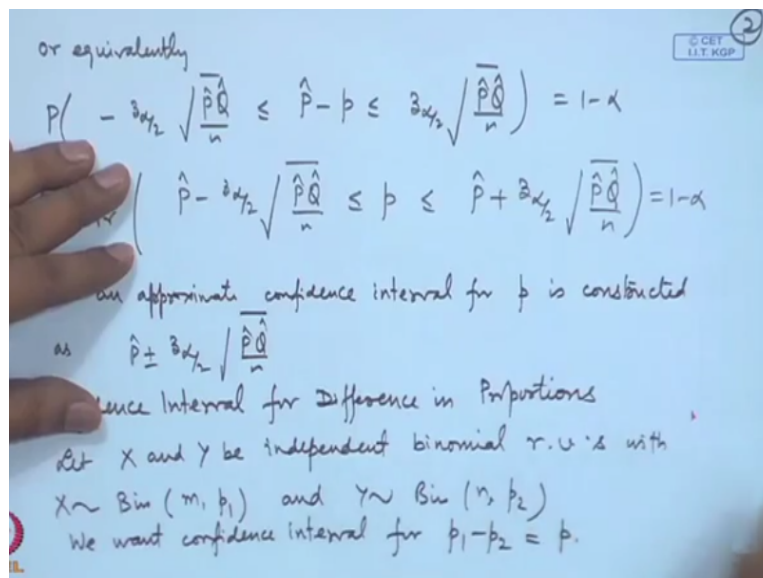 ②
© CET
I.I.T. KGP
or equivalently
P( - z_{α/2} √(P̂Q̂/n) ≤ P̂ - p ≤ z_{α/2} √(P̂Q̂/n) ) = 1-α
( P̂ - z_{α/2} √(P̂Q̂/n) ≤ p ≤ P̂ + z_{α/2} √(P̂Q̂/n) ) = 1-α
an approximate confidence interval for p is constructed
as P̂ ± z_{α/2} √(P̂Q̂/n)
ence Interval for Difference in Proportions
Let X and Y be independent binomial r.v.'s with
X ~ Bin (m, p₁) and Y ~ Bin (n, p₂)
We want confidence interval for p₁-p₂ = p.